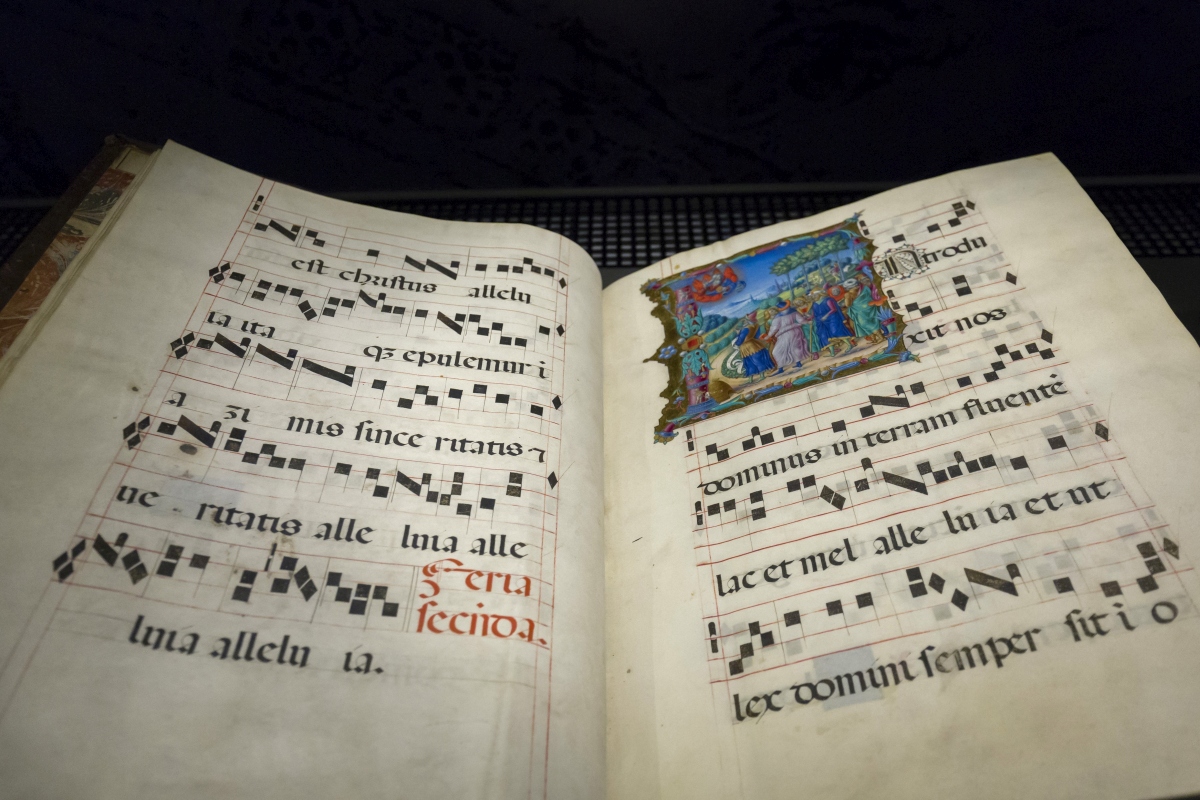 est christus allelu
ia ita qz epulemur i
a zi mis since ritatis ⁊
ue ritatis alle luia alle
luia allelu ia.
Feria
secūda.
Introdu
xit nos
dominus in terram fluentē
lac et mel alle lu ia et ut
lex domini semper sit i o